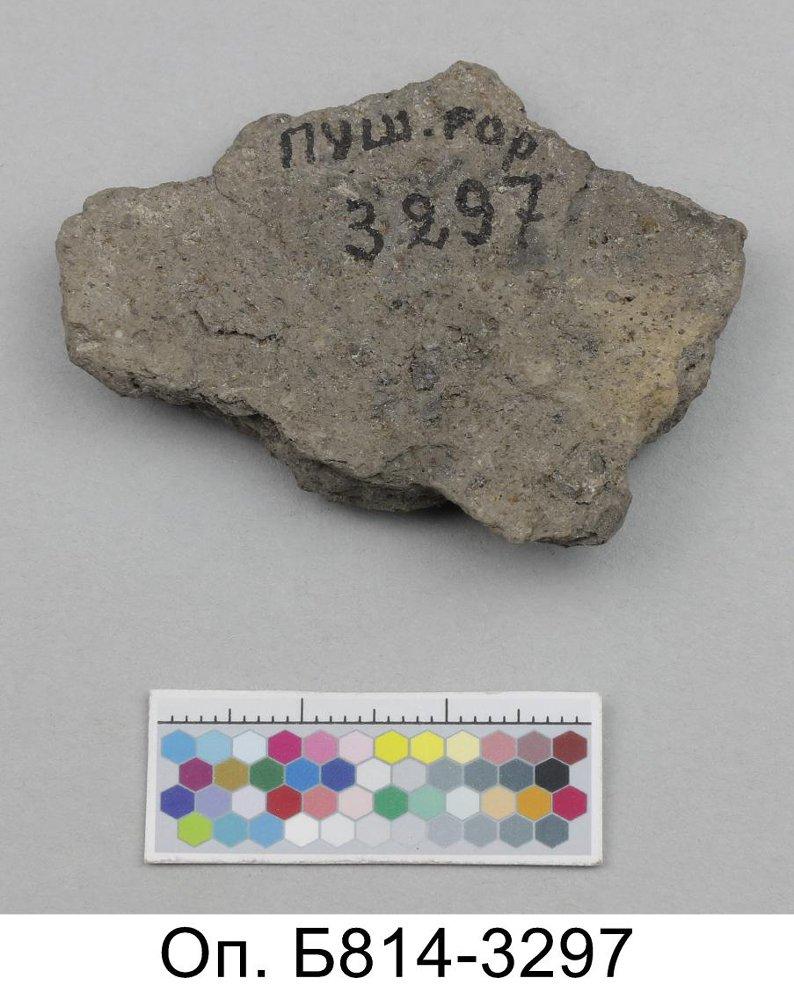 пуш.гор
3297
Оп. Б814-3297